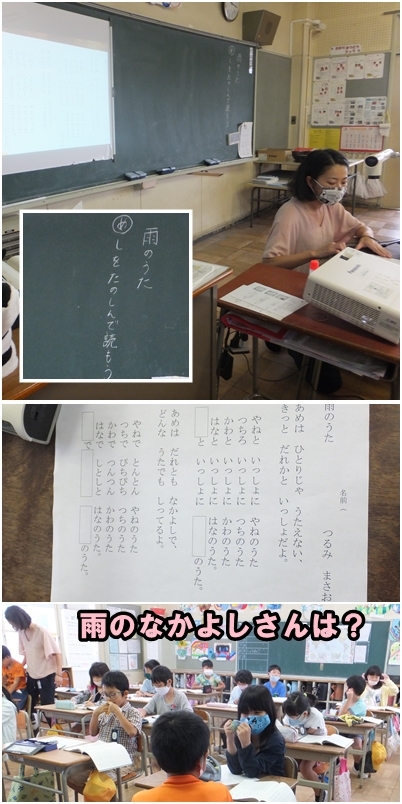 雨のうた
めしをたのしんで読もう
Panasonic
雨のうた
つるみ まさお
名前(
あめは ひとりじゃ うたえない、
きっと だれかと いっしょだよ。
やねと いっしょに やねのうた
つちと いっしょに つちのうた
かわと いっしょに かわのうた
はなと いっしょに はなのうた
と いっしょに のうた。
あめは だれとも なかよしで、
どんな うたでも しってるよ。
やねで とんとん やねのうた
つちで ぴちぴち つちのうた
かわで つんつん かわのうた
はなで しとしと はなのうた。
で のうた。
雨のなかよしさんは?